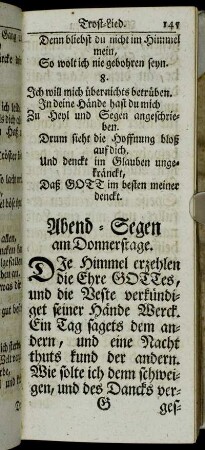 Trost-Lied. 145
Denn bliebst du nicht im Himmel
mein,
So wolt ich nie gebohren seyn.
8.
Ich will mich über nichts betrüben.
In deine Hände hast du mich
Zu Heyl und Segen angeschrie-
ben.
Drum sieht die Hoffnung bloß
auf dich,
Und denckt im Glauben unge-
kränckt,
Daß GOTT im besten meiner
denckt.
Abend-Segen
am Donnerstage.
DJe Himmel erzehlen
die Ehre GOTTes,
und die Veste verkündi-
get seiner Hände Werck.
Ein Tag sagets dem an-
dern, und eine Nacht
thuts kund der andern.
Wie solte ich denn schwei-
gen, und des Dancks ver-
G ges-